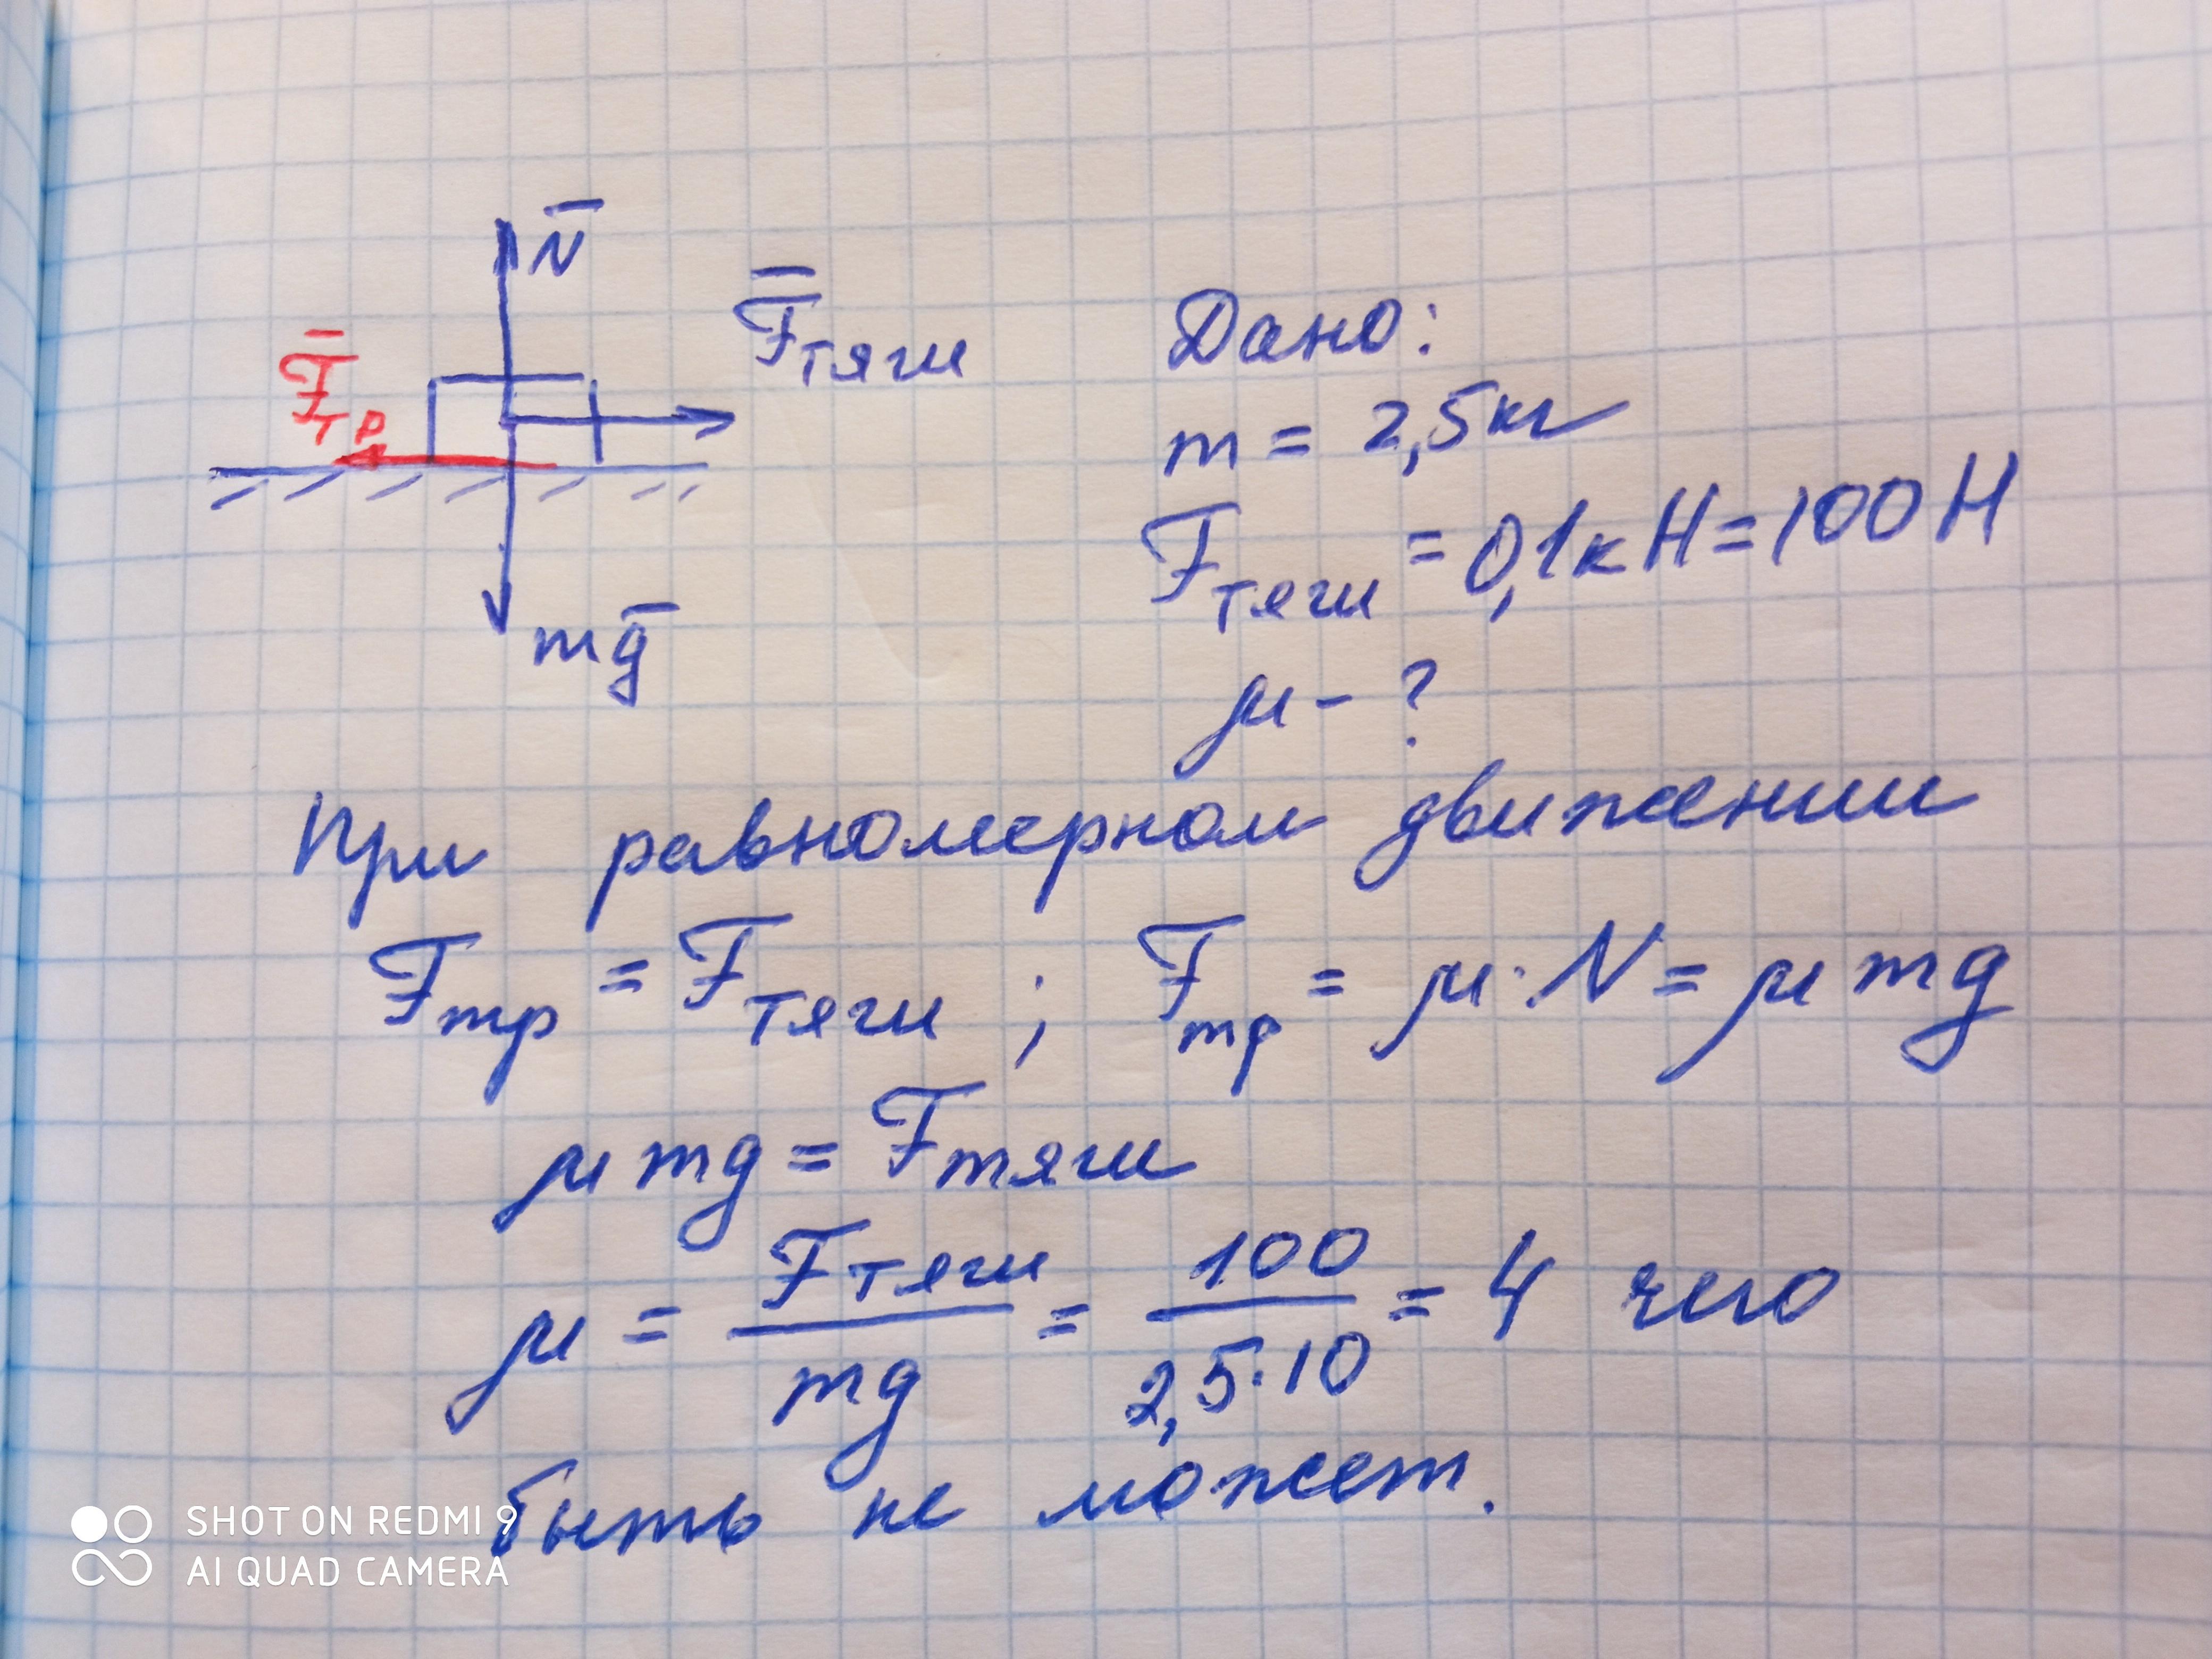 N̄
F̄тяги
F̄тр
mḡ
Дано:
m = 2,5кг
Fтяги = 0,1кН = 100Н
μ - ?
При равномерном движении
Fтр = Fтяги ; Fтр = μ·N = μmg
μmg = Fтяги
μ = Fтяги/mg = 100/2,5·10 = 4 чего
быть не может.
SHOT ON REDMI 9
AI QUAD CAMERA